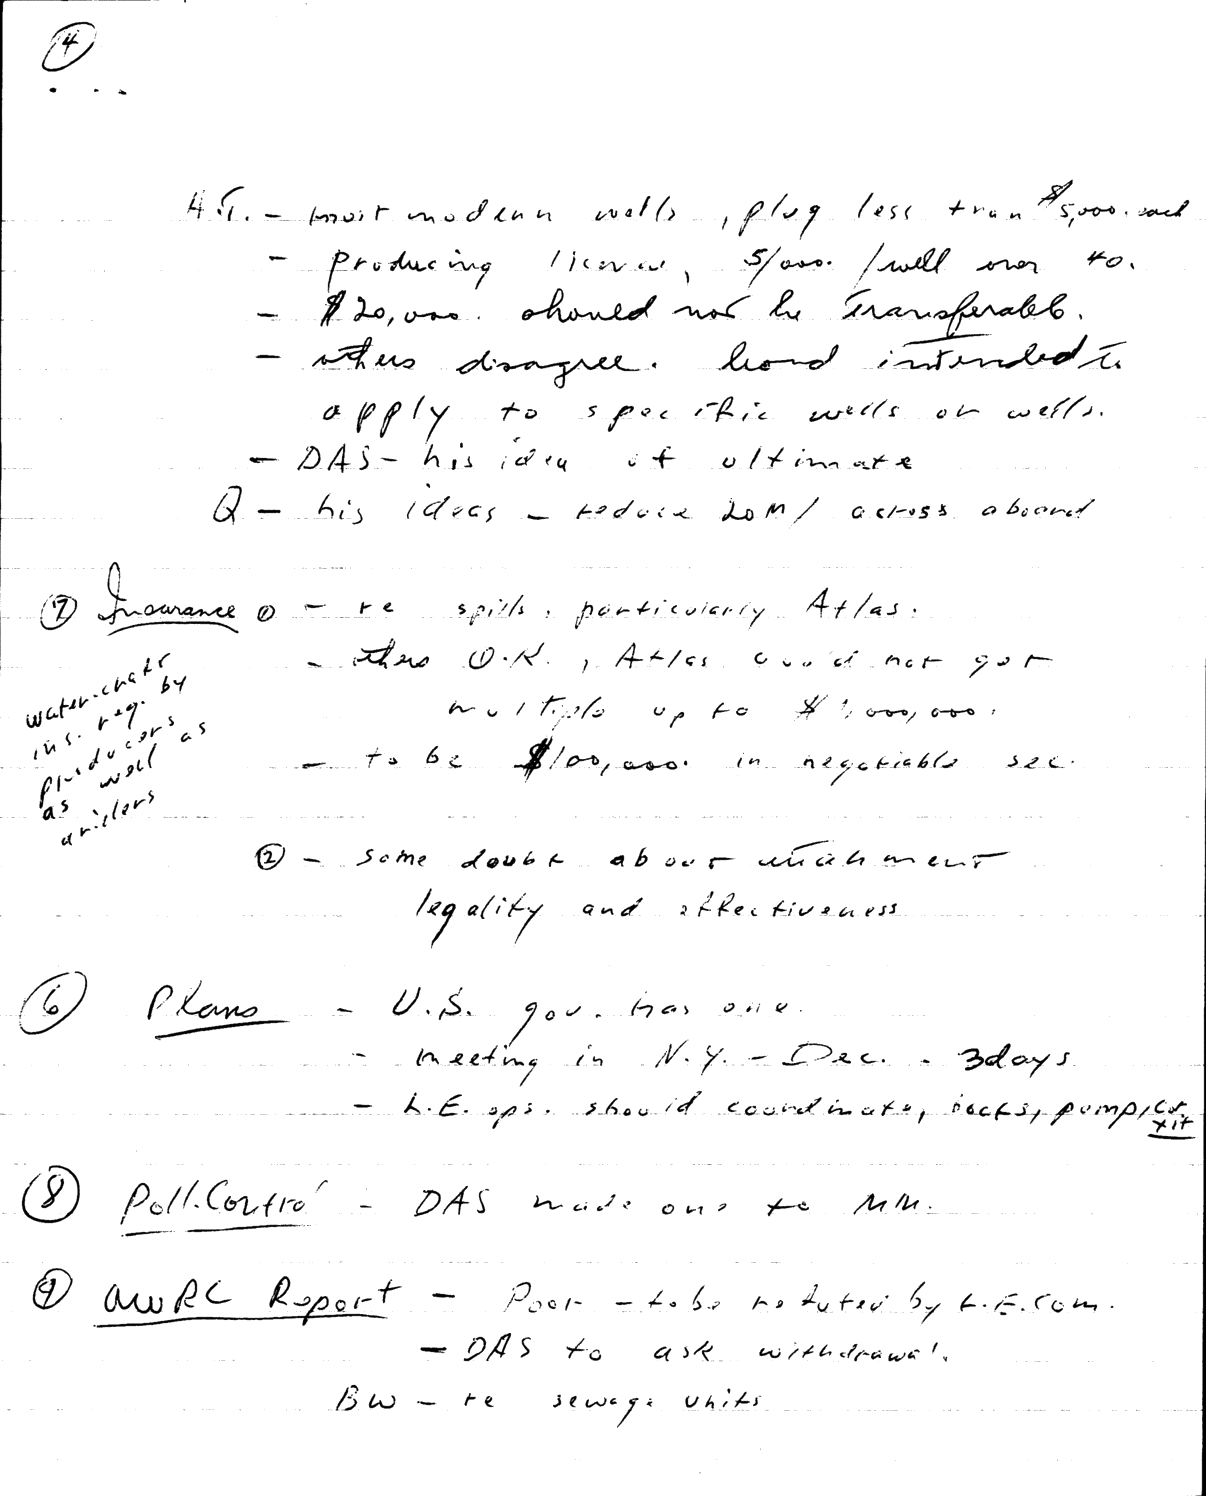 4
H.T. - most modern wells, plug less than $5,000. each
- producing license, 5/000. /well over 40.
- $20,000. should not be transferable.
- others disagree. bond intended to
apply to specific wells or wells.
- DAS - his idea of ultimate
Q - his ideas - reduce 20M/ across aboard
7 Insurance ① - re spills, particularly Atlas.
- others O.K., Atlas could not get
multiple up to $1,000,000.
- to be $100,000. in negotiable sec.
water-craft
ins. req. by
producers
as well as
drillers
② - some doubt about attachment
legality and effectiveness
6 Plans - U.S. gov. has one.
- meeting in N.Y. - Dec. - 3 days
- L.E. ops. should coordinate, pump,
8 Poll. Control - DAS made one to MM.
9 OWRC Report - Poor - to be refuted by L.E. Com.
- DAS to ask withdrawal.
BW - re sewage units